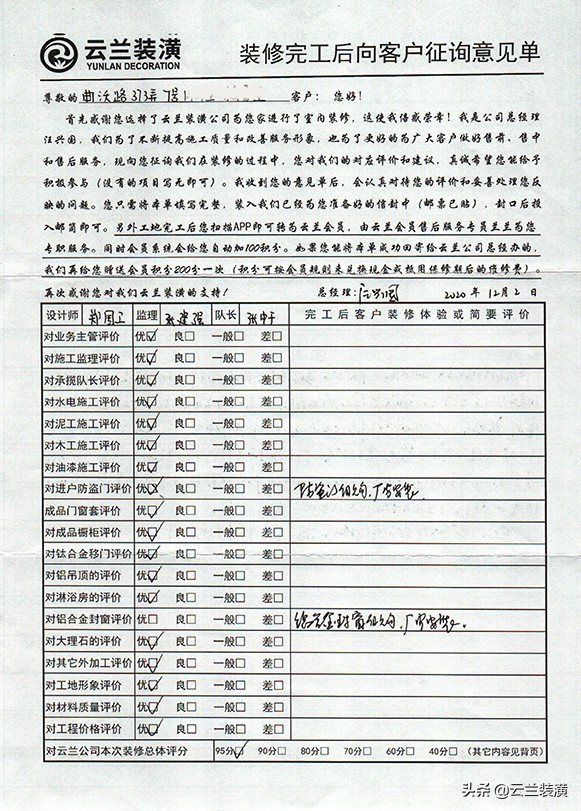 云兰装潢
YUNLAN DECORATION
装修完工后向客户征询意见单
尊敬的 曲沃路373弄 客户： 您好！
首先感谢您选择了云兰装潢公司为您家进行了室内装修，这使我倍感荣幸！我是公司总经理
汪兴国，我们为了不断提高施工质量和改善服务形象，也为了更好的为广大客户做好售前、售中
和售后服务，现向您征询我们在装修的过程中，您对我们的对应评价和建议，真诚希望您能给予
积极参与（没有的项目写无即可）。我收到您的意见单后，会认真对待您的评价和妥善处理您反
映的问题。您只需将本单填写完整，装入我们已经为您准备好的信封中（邮票已贴），封口后投
入邮筒即可。另外工地完工后您扫描APP即可转为云兰会员，由云兰会员售后服务专员兰兰为您
专职服务。同时会员系统会给您自动加100积分。如果您能将本单成功回寄给云兰公司总经办的，
我们再给您赠送会员积分200分一次（积分可按会员规则来兑换现金或抵用保修期后的维修费）。
再次感谢您对我们云兰装潢的支持！ 总经理：汪兴国 2020 年 12月 2 日
设计师 郑国卫 监理 队长 完工后客户装修体验或简要评价
对业务主管评价 优☑ 良□ 一般□ 差□
对施工监理评价 优☑ 良□ 一般□ 差□
对承揽队长评价 优☑ 良□ 一般□ 差□
对水电施工评价 优☑ 良□ 一般□ 差□
对泥工施工评价 优☑ 良□ 一般□ 差□
对木工施工评价 优☑ 良□ 一般□ 差□
对油漆施工评价 优☑ 良□ 一般□ 差□
对进户防盗门评价 优☑ 良□ 一般□ 差□ 厂家安装。
成品门窗套评价 优☑ 良□ 一般□ 差□
对成品橱柜评价 优☑ 良□ 一般□ 差□
对钛合金移门评价 优☑ 良□ 一般□ 差□
对铝吊顶的评价 优☑ 良□ 一般□ 差□
对淋浴房的评价 优☑ 良□ 一般□ 差□
对铝合金封窗评价 优□ 良□ 一般□ 差□ 铝合金封窗 厂家安装。
对大理石的评价 优☑ 良□ 一般□ 差□
对其它外加工评价 优☑ 良□ 一般□ 差□
对工地形象评价 优☑ 良□ 一般□ 差□
对材料质量评价 优☑ 良□ 一般□ 差□
对工程价格评价 优☑ 良□ 一般□ 差□
对云兰公司本次装修总体评分 95分☑ 90分□ 80分□ 70分□ 60分□ 40分□ （其它内容见背页）
头条 @云兰装潢